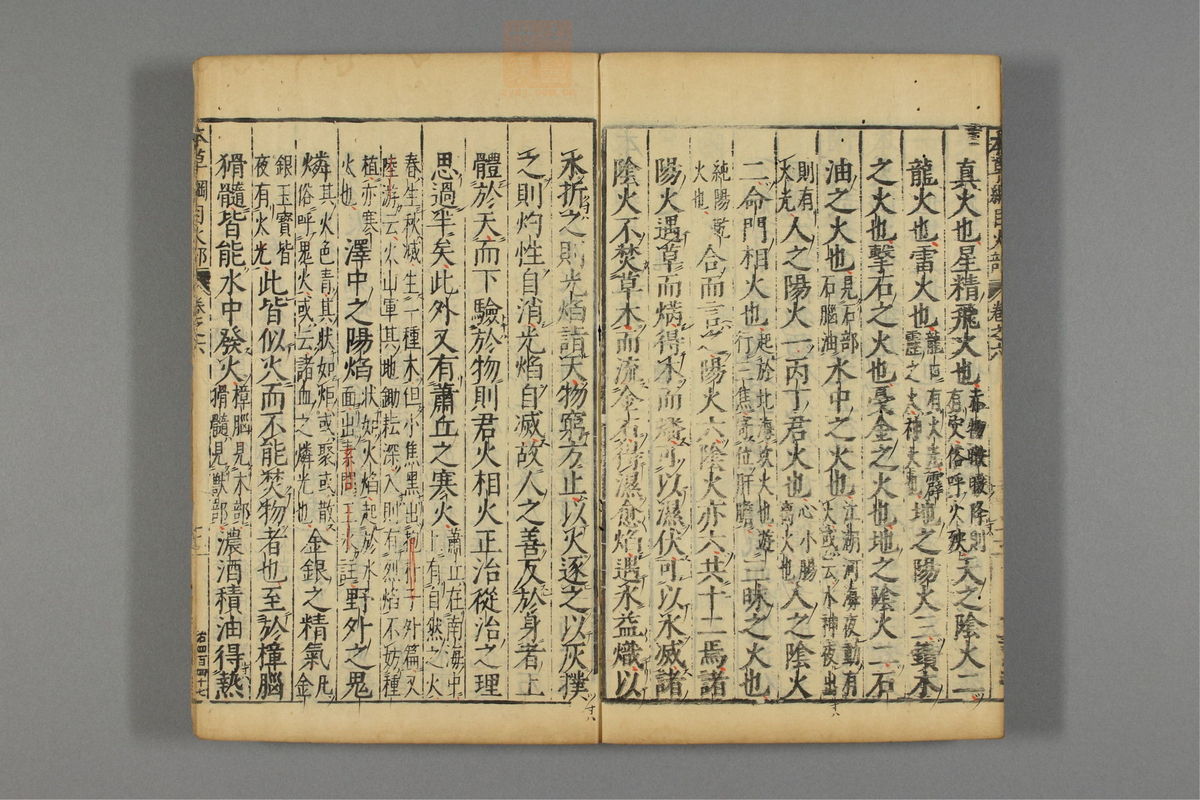 真火也星精飛火也赤物暾暾降則有灾俗呼火殃天之陰火二
龍火也雷火也龍口有火光霹靂之火神火也地之陽火三鑽木
之火也擊石之火也戛金之火也地之陰火二石
油之火也見石部石腦油水中之火也江湖河海夜動有火或云水神夜出
則有火光人之陽火一丙丁君火也心小腸離火也人之陰火
二命門相火也起於北海坎火也遊行三焦寄位肝膽三昧之火也
純陽乾火也合而言之陽火六陰火亦六共十二焉諸
陽火遇草而焫得木而燔可以濕伏可以水滅諸
陰火不焚草木而流金石得濕愈焰遇水益熾以
水折之則光焰詣天物窮方止以火逐之以灰撲
之則灼性自消光焰自滅故人之善反於身者上
體於天而下驗於物則君火相火正治從治之理
思過半矣此外又有蕭丘之寒火蕭丘在南海中上有自然之火
春生秋滅生一種木但小焦黑出抱朴子外篇又陸游云火山軍其地鋤耘深入則有烈焰不妨種
植亦寒火也澤中之陽焰狀如火焰起於水面出素問王冰註野外之鬼
燐其火色青其狀如炬或聚或散俗呼鬼火或云諸血之燐光也金銀之精氣凡金
銀玉寶皆夜有火光此皆似火而不能焚物者也至於樟腦
猾髓皆能水中發火樟腦見木部猾髓見獸部濃酒積油得熱
本草綱目火部 卷之六